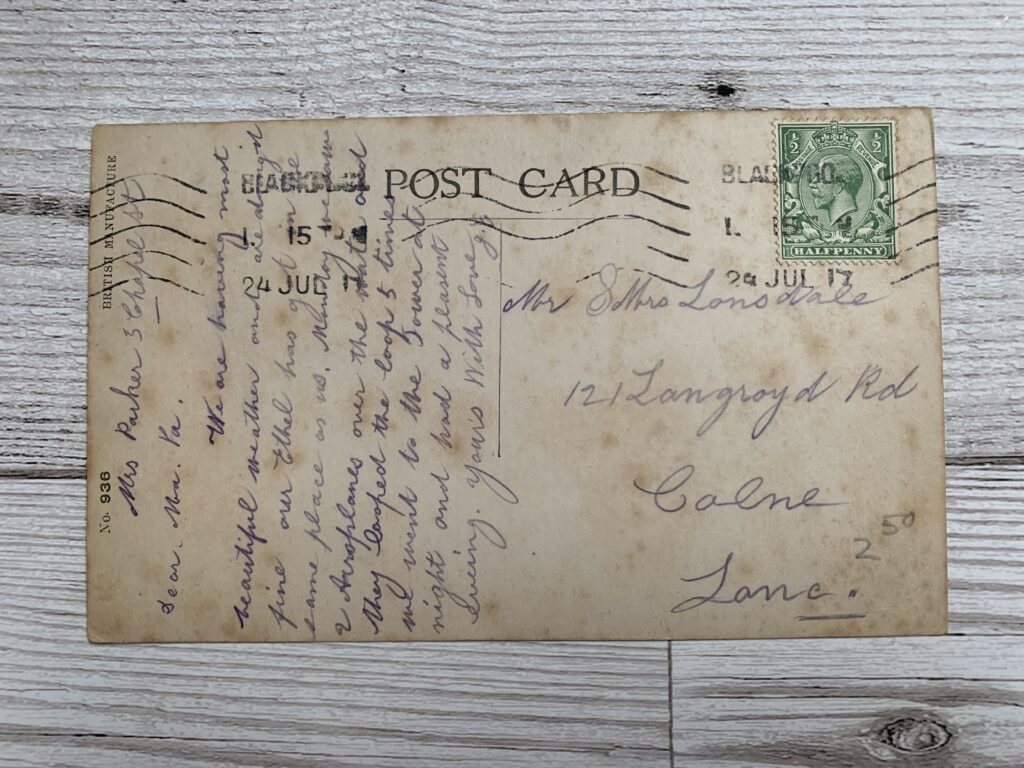 POST CARD
BRITISH MANUFACTURE
No. 936
BLACKPOOL
15
24 JUL 17
BLACKPOOL
15
24 JUL 17
½ ½
POSTAGE
HALFPENNY
Mrs Parker 3 Chapel St
Dear. Ma. Pa.
We are having most
beautiful weather and are
fine our Ethel has got in the
same place as us. Monday we saw
2 Aeroplanes over the water and
they looped the loop 5 times
we went to the Tower at
night and had a pleasent
Evening. yours With Love
Mr & Mrs Lonsdale
121 Langroyd Rd
Colne
Lanc.
2 50